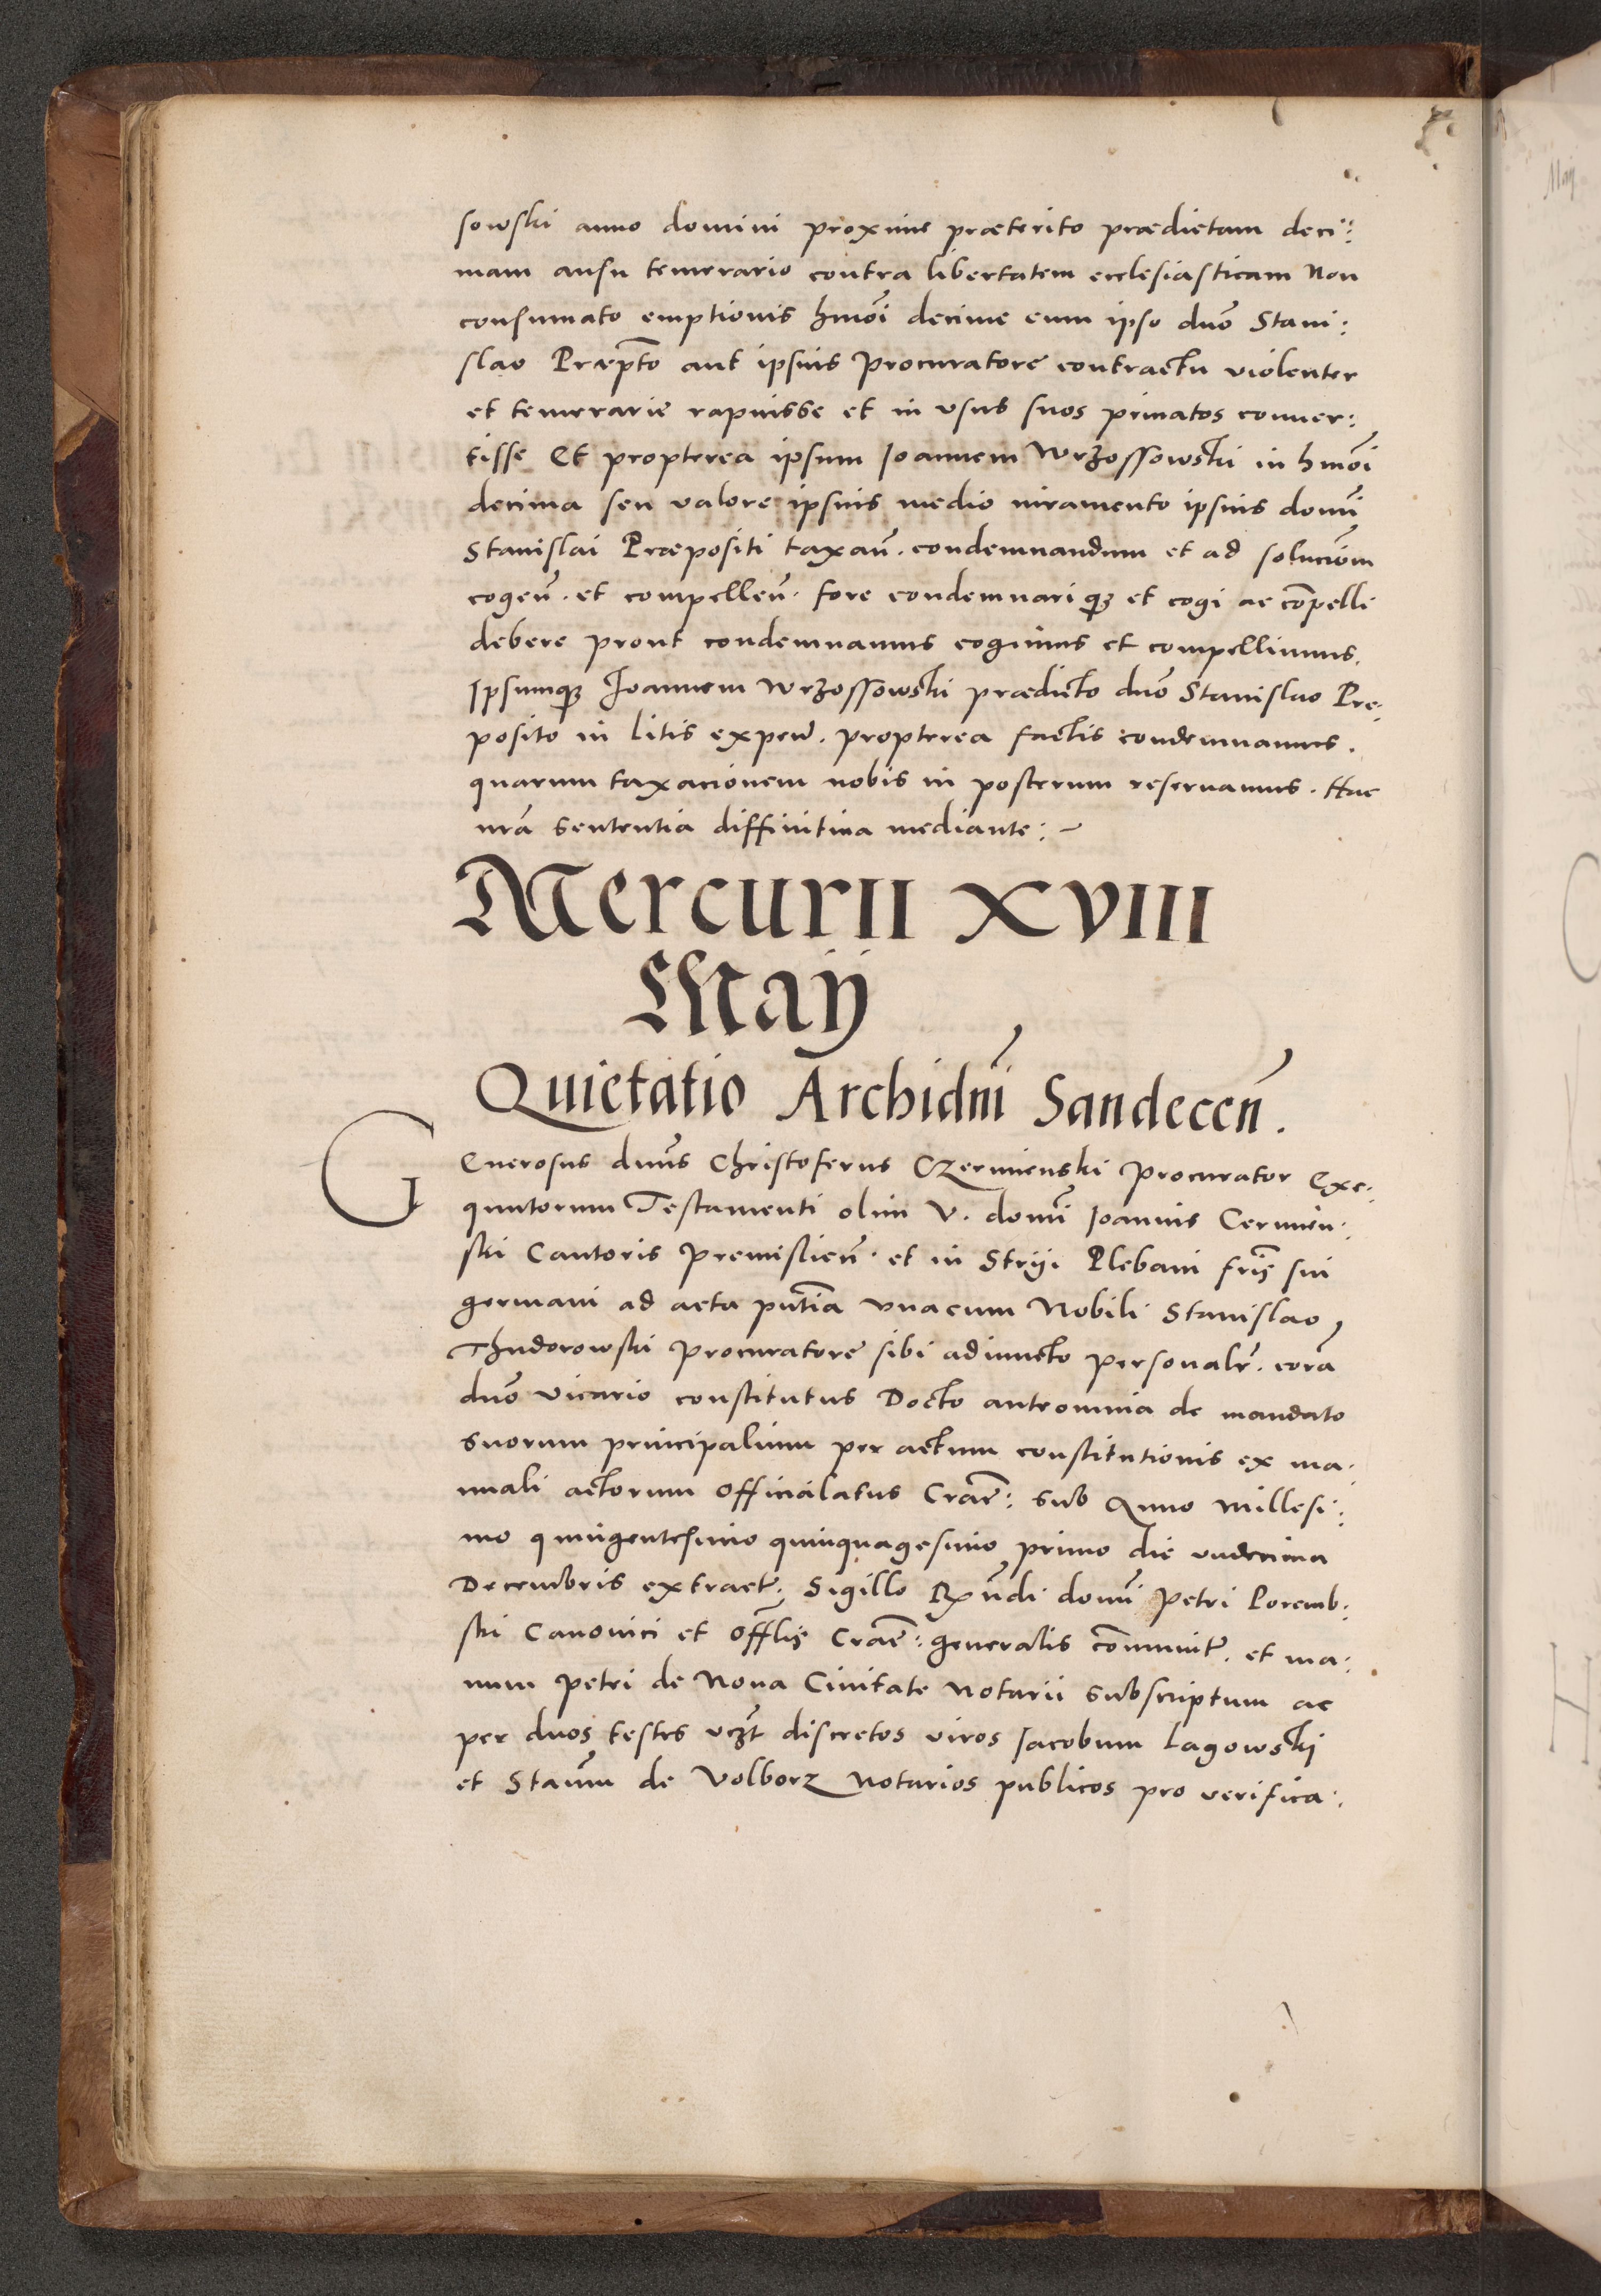 sowski anno domini proxime præterito prædictam deci:
mam ausu temerario contra libertatem ecclesiasticam Non
consumato emptionis hmoi decime cum ipso dno Stani:
slao Præpto aut ipsius Procuratore contractu violenter
et temerarie rapuisse et in vsus suos priuatos conuer:
tisse Et propterea ipsum Joannem Wrzossowski in hmoi
decima seu valore ipsius medio iuramento ipsius domi
Stanislai Præpositi taxan. condemnandum et ad solucióm
cogen. et compellen. fore condemnari q3 et cogi ac compelli
debere prout condemnamus cogimus et compellimus.
Ipsumq3 Joannem Wrzossowski prædicto dno Stanislao Pre:
posito in litis expen. propterea factis condemnamus.
quarum taxacionem nobis in posterum reseruamus. Hac
nrã sententia diffinitiua mediante: ~
Mercurii XVIII
Maÿ
Quietatio Archidni Sandecen.
Generosus dnus Christoferus Czermienski Procurator Exe:
quutorum Testamenti olim V. domi Joannis Cermien:
ski Cantoris Premislien. et in Stryi Plebani fris sui
germani ad acta pntia vnacum Nobili Stanislao
Thudorowski Procuratore sibi adiuncto personalr. corã
dno Vicario constitutus Docto anteomnia de mandato
suorum principalium per actum constitutionis ex ma:
nuali actorum Officialatus Crac: sub Anno Millesi:
mo quingentesimo quinquagesimo primo die vndecima
Decembris extract. Sigillo Rxndi domi Petri Poremb:
ski Canonici et Offlis Crac: generalis communit. et ma:
num Petri de Noua Ciuitate Notarii subscriptum ac
per duos testes vczt discretos viros Jacobum Lagowski
et Stanum de Volborz Notarios publicos pro verifica: